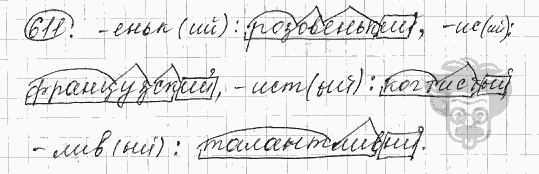 611. -еньк (ий): розовенький, -ис(ий):
французский, -ист(ый): когтистый
-лив (ый): талантливый.